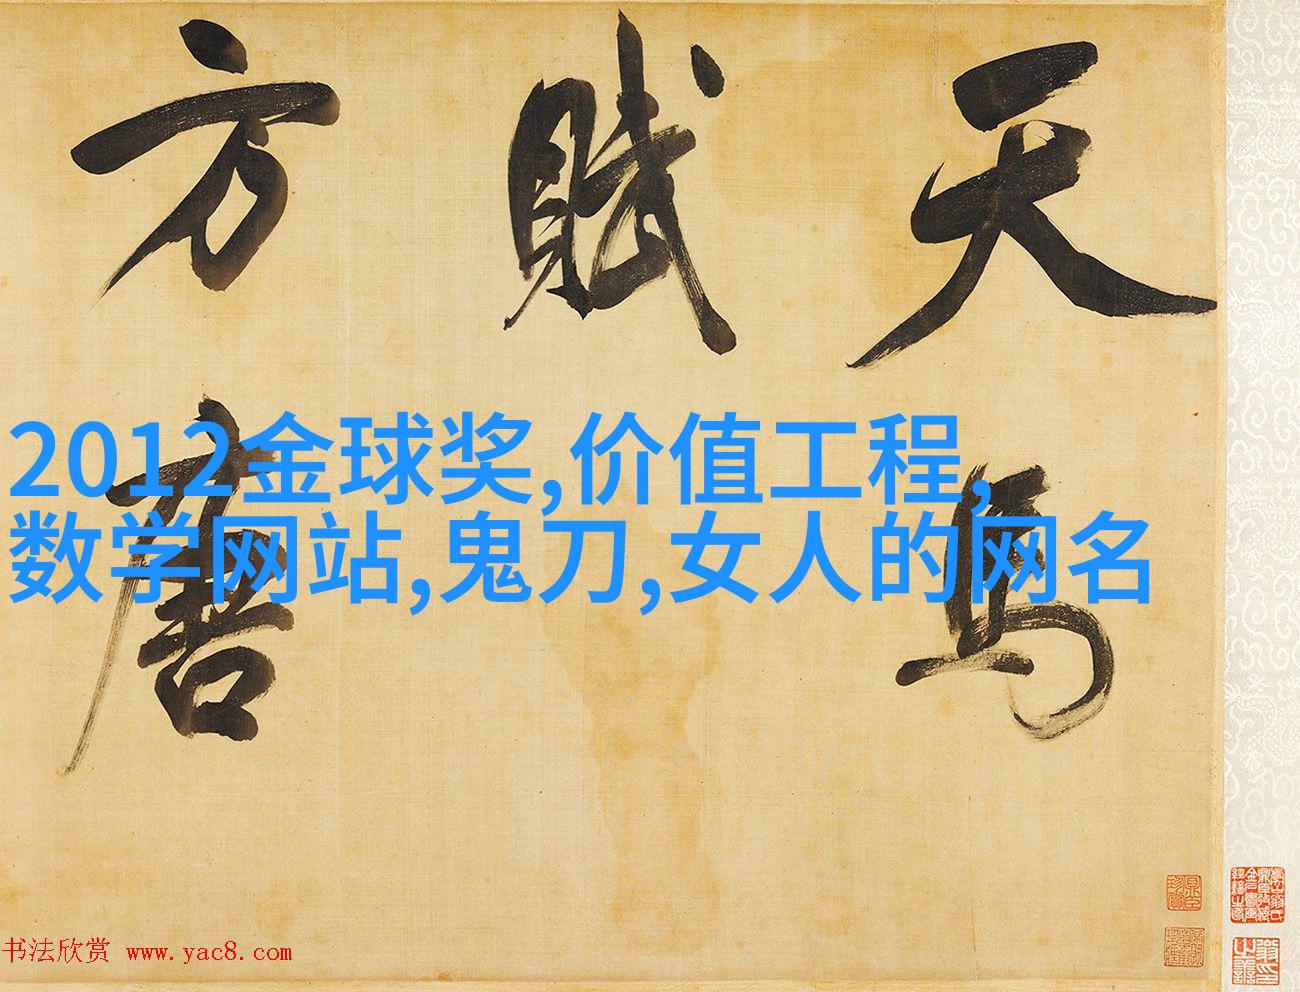 天马
赋
方
唐
2012金球奖,价值工程,
数学网站,鬼刀,女人的网名
书法欣赏 www.yac8.com